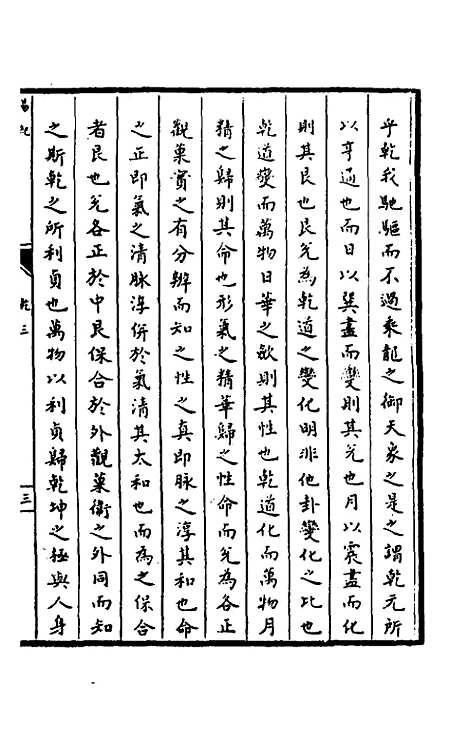 乎乾我馳驅而不過乘龍之御天象之是之謂乾元所
以亨通也而日以巽盡而變則其兌也月以震盡而化
則其艮也艮兌為乾道之變化明非他卦變化之比也
乾道變而萬物日華之歛則其性也乾道化而萬物月
精之歸則其命也形氣之精華歸之性命而兌為各正
觀菓實之有分辨而知之性之真即脉之淳其和也命
之正即氣之清脉淳併於氣清其太和也而為之保合
者艮也兌各正於中艮保合於外觀菓衛之外同而知
之斯乾之所利貞也萬物以利貞歸乾坤之極與人身
乾三
三